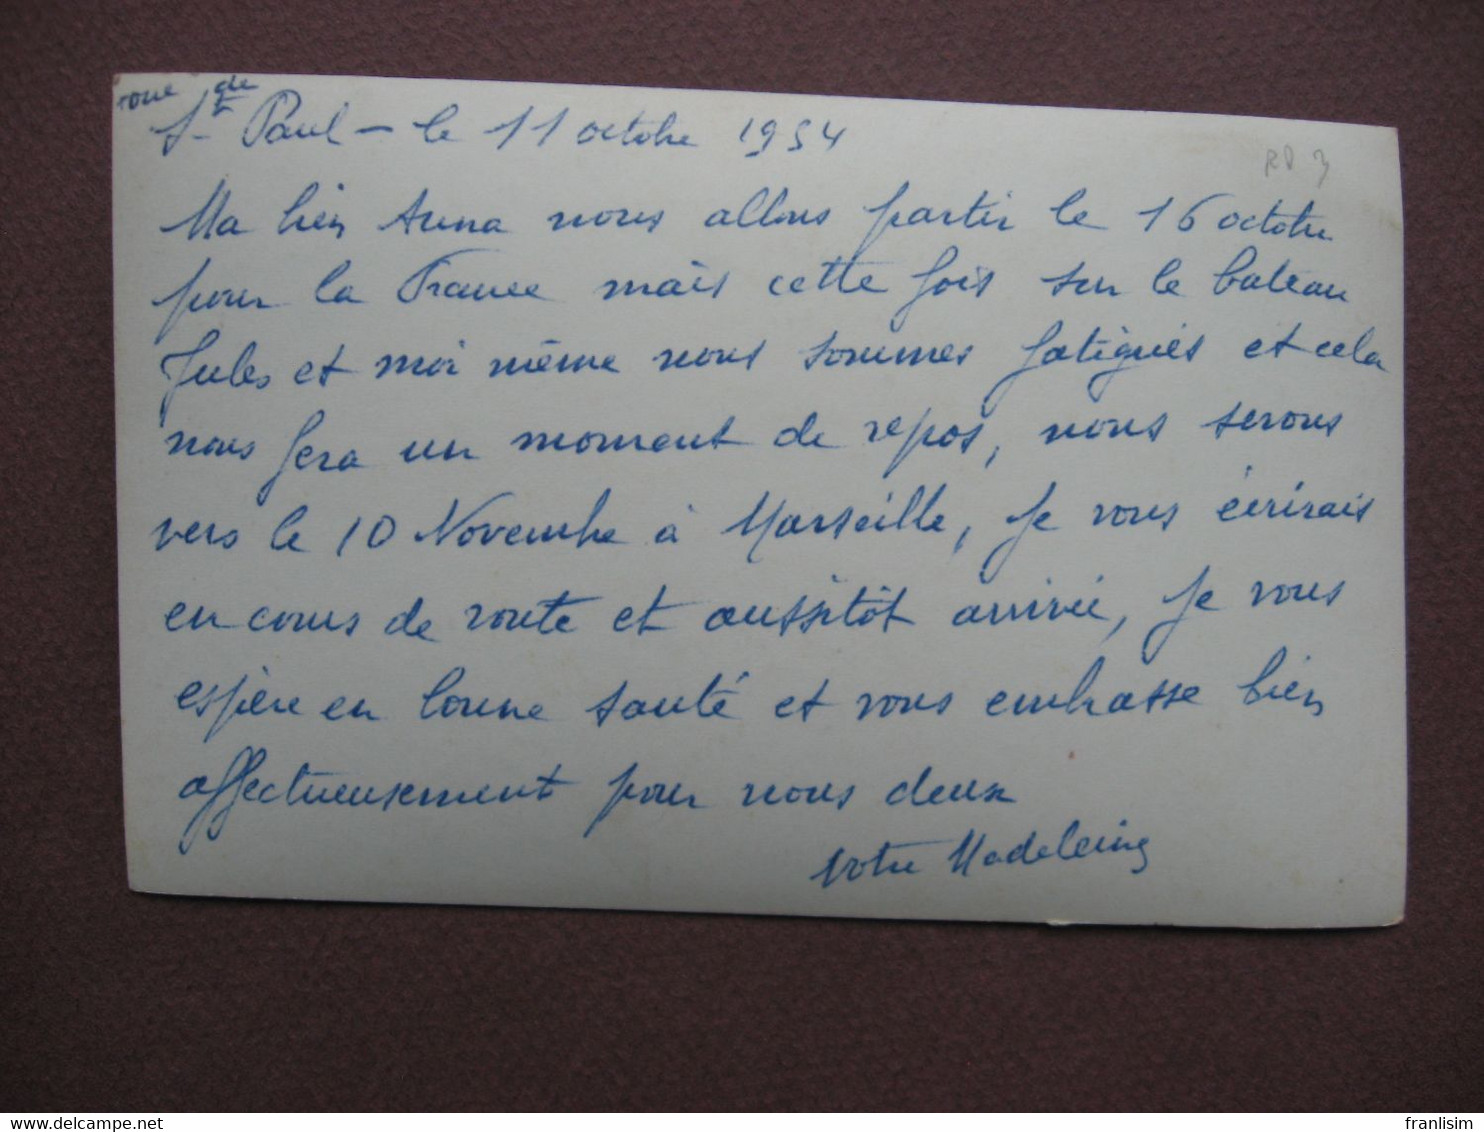 de
St Paul – le 11 octobre 1954
RP 3
Ma bien Anna nous allons partir le 16 octobre
pour la France mais cette fois sur le bateau
Jules et moi même nous sommes fatigués et cela
nous fera un moment de repos, nous serons
vers le 10 Novembre à Marseille, je vous écrirais
en cours de route et aussitôt arrivée, je vous
espère en bonne santé et vous embrasse bien
affectueusement pour nous deux
votre Madeleine
delcampe.net
franlisim